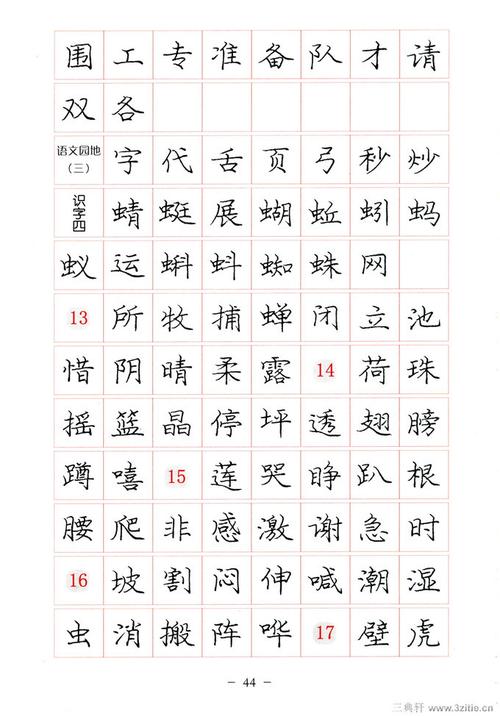 围 工 专 准 备 队 才 请
双 各
语文园地（三） 字 代 舌 页 弓 秒 炒
识字四 蜻 蜓 展 蝴 蚯 蚓 蚂
蚁 运 蝌 蚪 蜘 蛛 网
13 所 牧 捕 蝉 闭 立 池
惜 阴 晴 柔 露 14 荷 珠
摇 篮 晶 停 坪 透 翅 膀
蹲 嘻 15 莲 哭 睁 趴 根
腰 爬 非 感 激 谢 急 时
16 坡 割 闷 伸 喊 潮 湿
虫 消 搬 阵 哗 17 壁 虎
- 44 -
三典轩 www.3zitie.cn